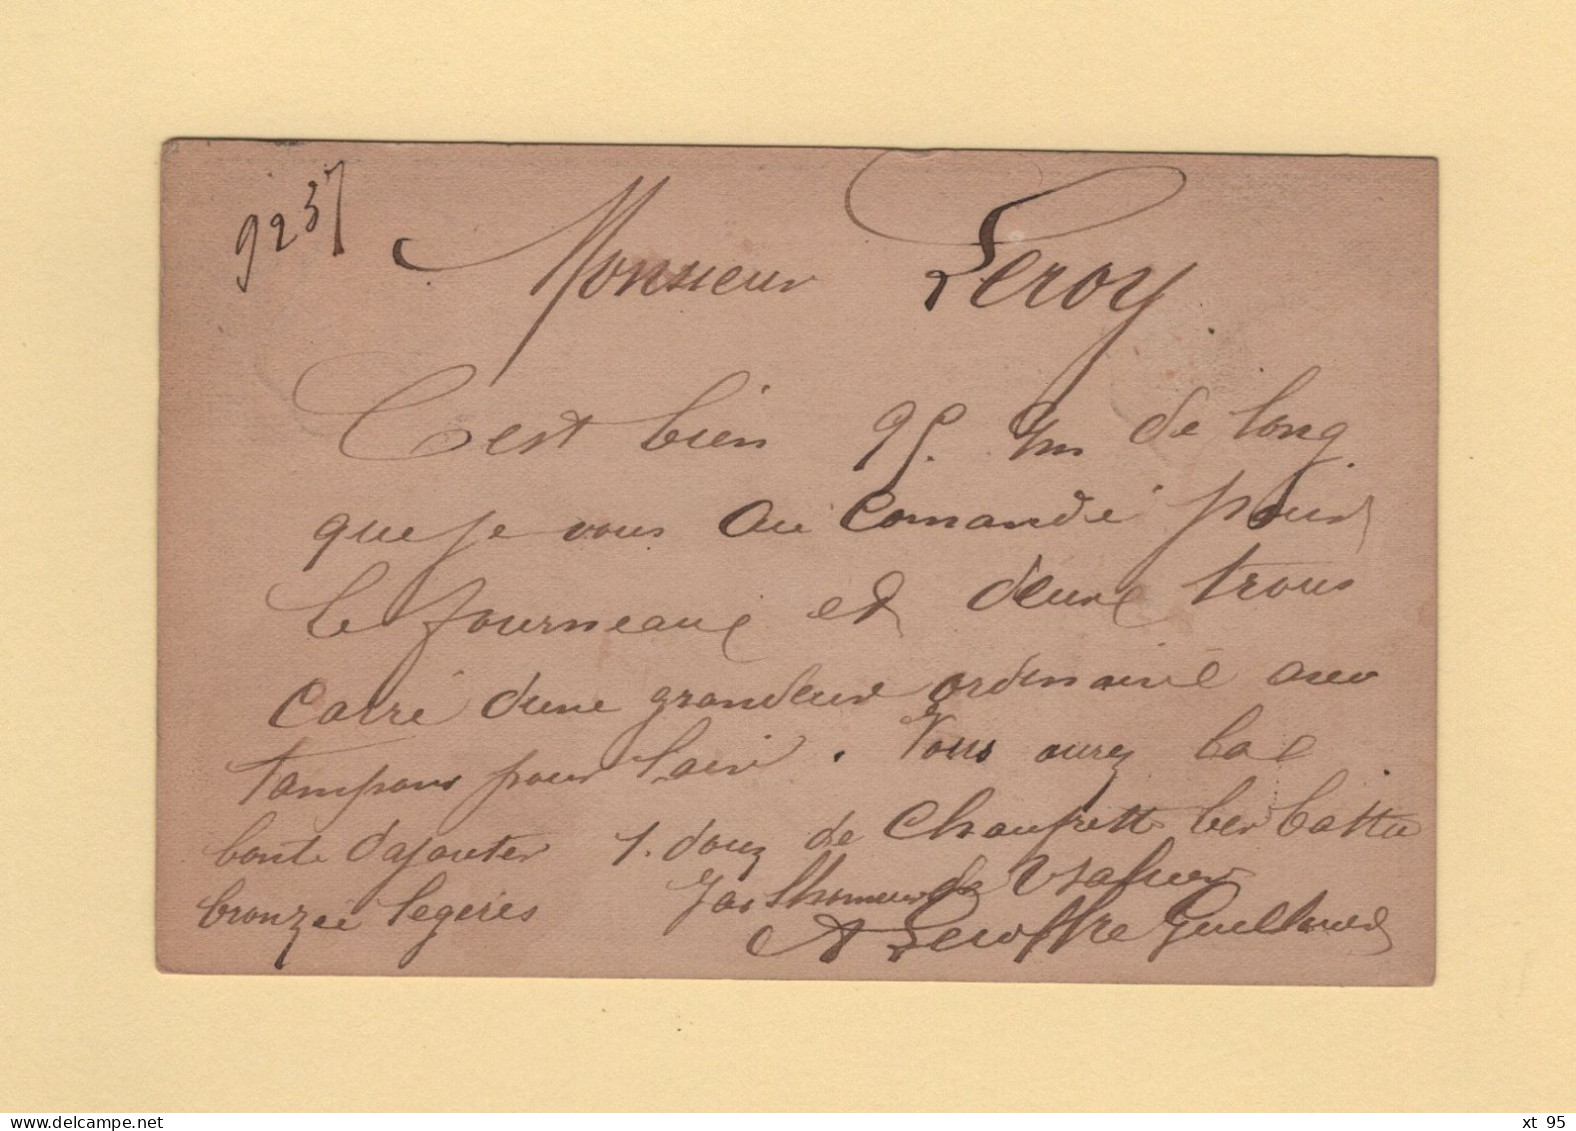 9237
Monsieur Leroy
C'est bien 95. c/m de long
que je vous ai comandé pour
le fourneaux et deux trous
carré d'une grandeur ordinaire avec
tampons pour l'air. Vous aurez la
bonté d'ajouter 1. douz de Chaufrette fer battu
bronzée legères J'ai l'honneur de Vsaluer
A Guillaud
xt 95